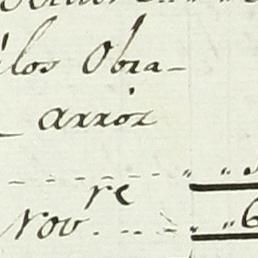 los Obra-
arroz
Nov.re " 6